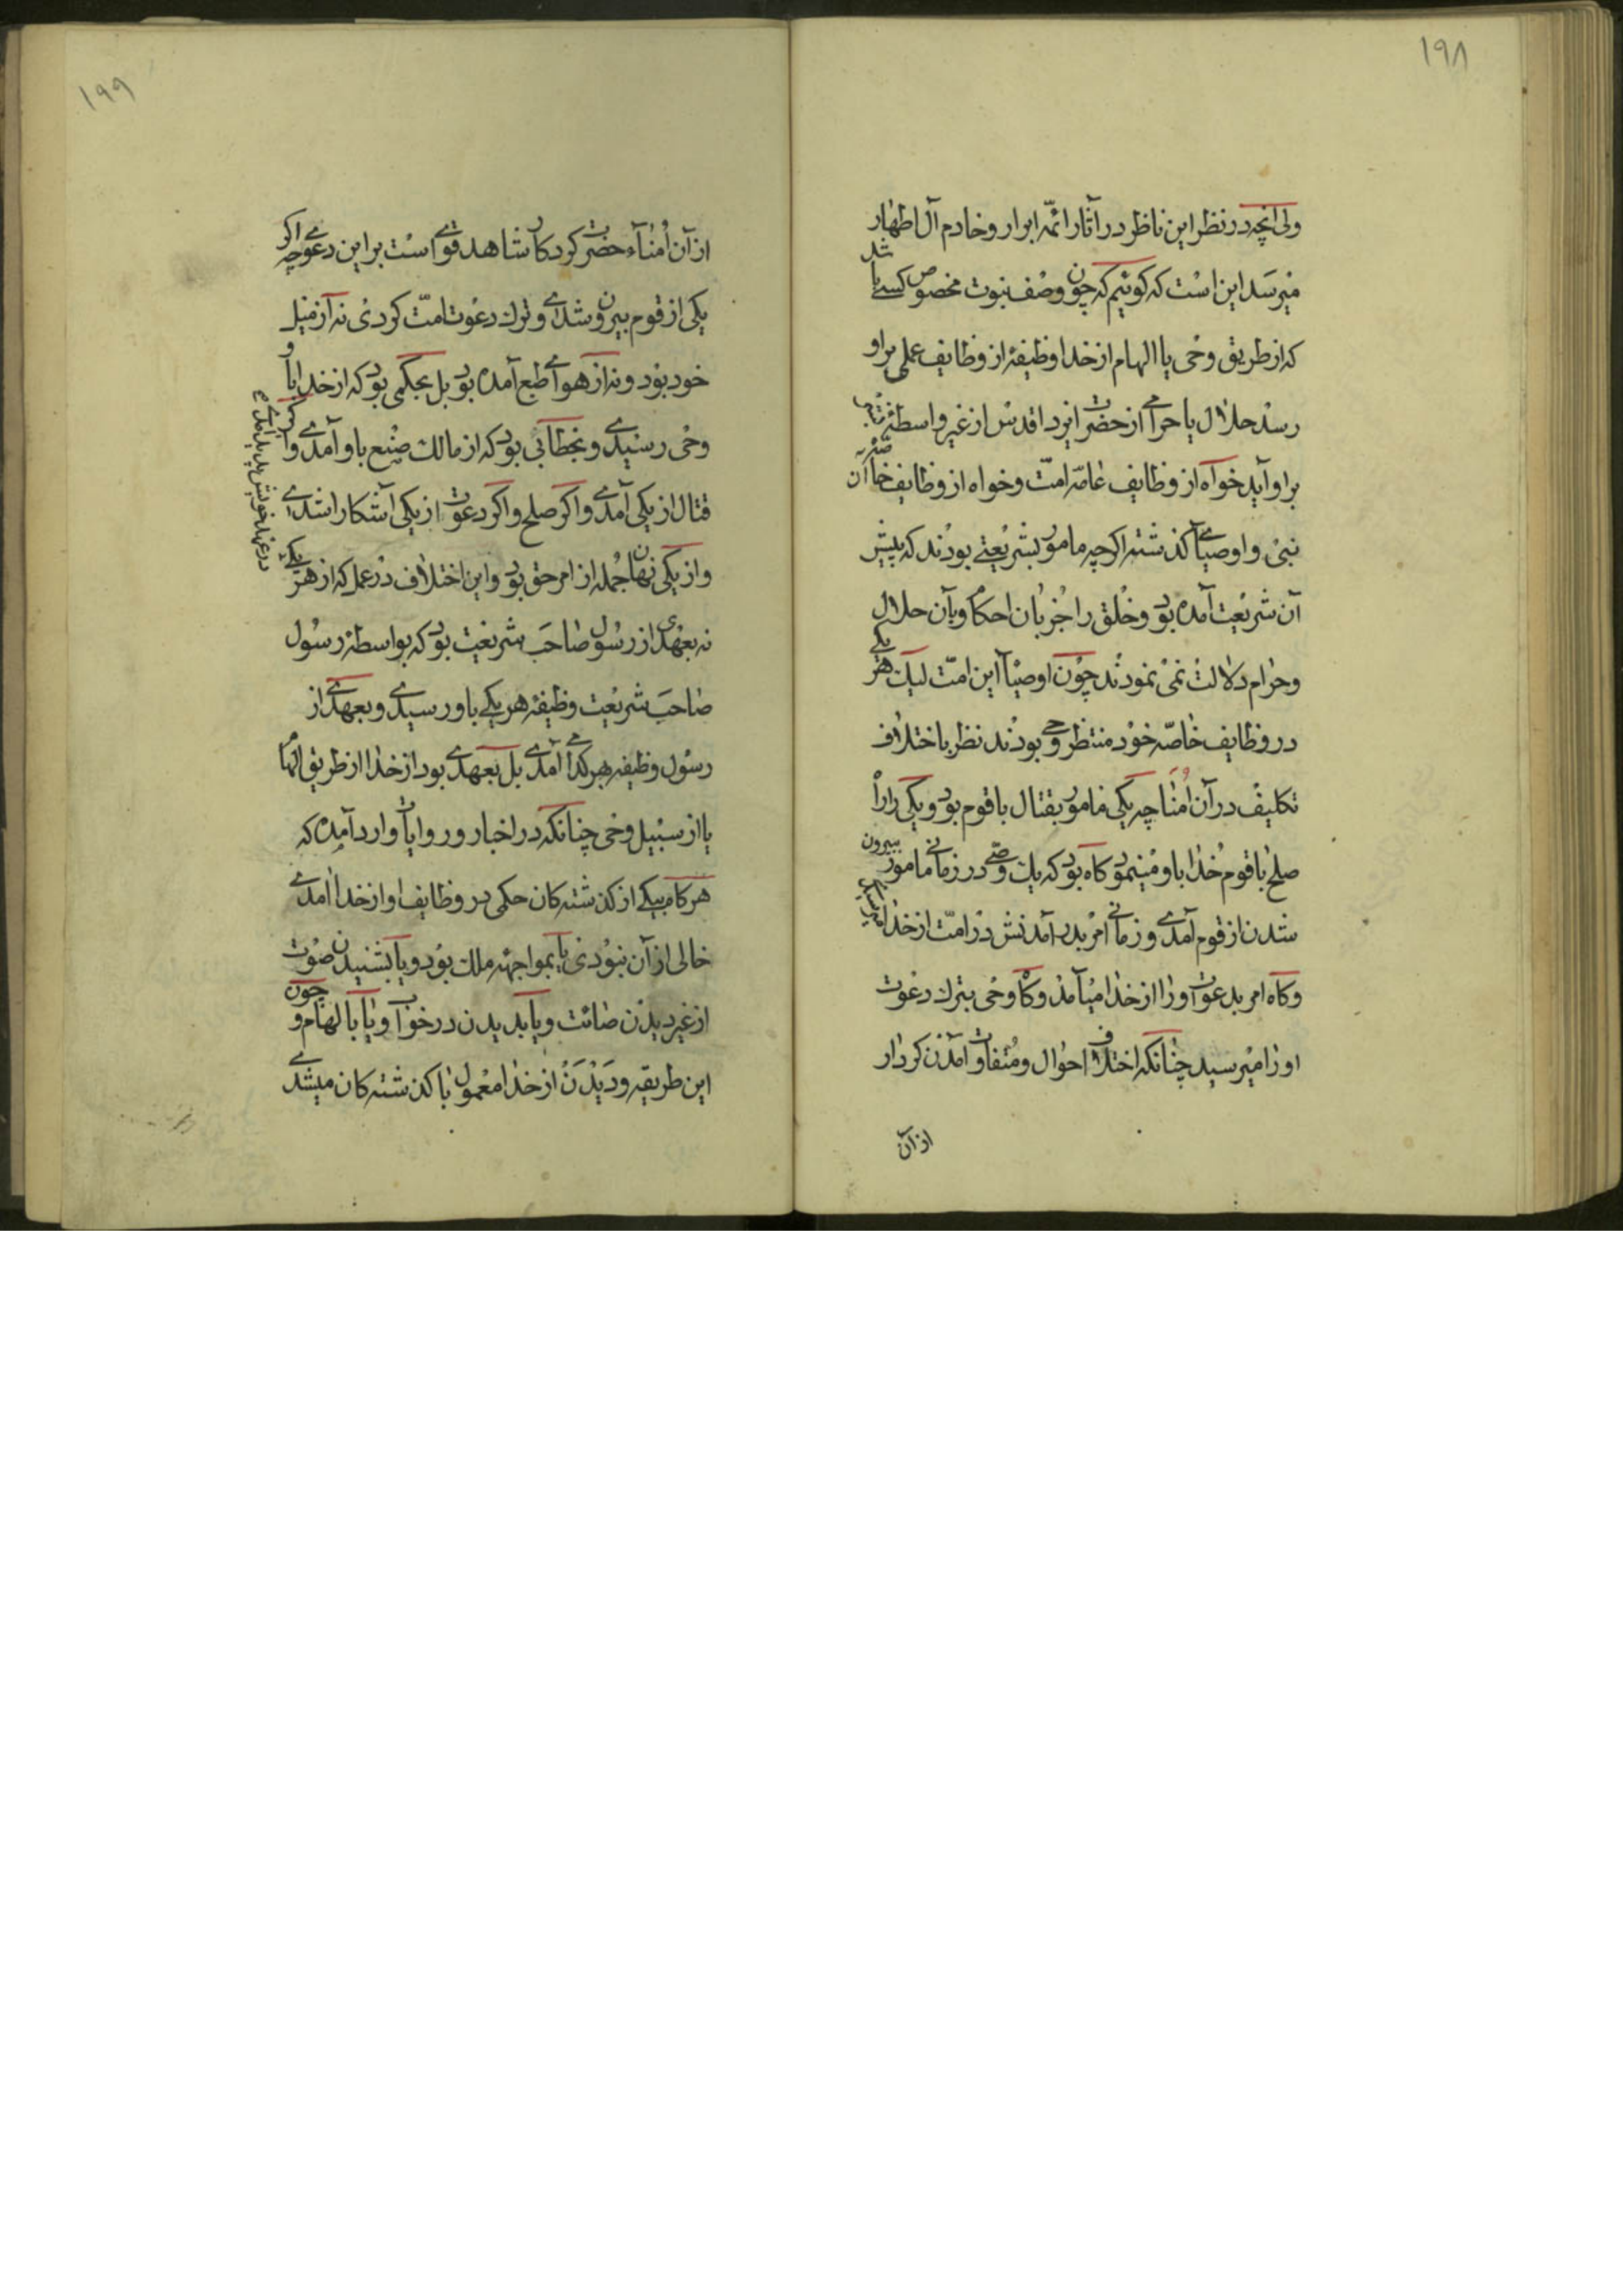 ۱۹۸
ولی آنچه در نظر این ناظر در آثار ائمّه ابرار و خادم آل اطهار
میرسد این است که کوئیم که چون وصف نبوت مخصوص کسے باشد
که از طریق وحی یا الهام از خدا وظیفهٔ از وظایف عملی بر او
رسد حلال یا حرامے از حضرت ایزد اقدس از غیر واسطهٔ
بر او آید خواه از وظایف عامّه امّت و خواه از وظایف خاصّهٔ آن
نبی و اوصیاے کذشته اکرچه مامور بشریعتے بودند که پیش
آن شریعت آمده بود و خلق را جز بان احکام و بآن حلال
و حرام دلالت نمی نمودند چون اوصیآ این امّت لیک هر یکے
در وظایف خاصّه خود منتظر وحی بودند نظر باختلاف
تکلیف در آن امنا چه یکی مامور بقتال با قوم بود و یکی را راه
صلح با قوم خدا باو مینمود کاه بود که یک وصّے در زمانے مامور بیرون
شدن از قوم آمدے و زمانے امر بدر آمدنش در امّت از خدا
و کاه امر بدعوت او را از خدا میآمد و کاه وحی بترک دعوت
او را میرسید چنانکه اختلاف احوال و متفاوت آمدن کردار
از آن
۱۹۹
از آن امنآء حضرت کردکار شاهد قوے است بر این دعوے چه اکر
یکی از قوم بیرون شدے و ترک دعوت امّت کردی نه از میل
خود بود و نه از هواے طبع آمده بود بل بحکمی بود که از خدا باو
وحی رسیدے و بخطابی بود که از مالک صنع باو آمدے و اکر
قتال از یکی آمدے و اکر صلح و اکر دعوت از یکی آشکارا شدے
و از یکی نهان جمله از امر حق بود و این اختلاف در عمل که از هر یکے
در عهد خویش پدید آمدے
نه بعهدی از رسول صاحب شریعت بود که بواسطهٔ رسول
صاحب شریعت وظیفه هر یکے باو رسیدے و بعهدے از
رسول وظیفه بهر کدام آمدے بل بعهدے بود از خدا از طریق الهام
یا از سبیل وحی چنانکه در اخبار و روایات وارد آمده که
هر کاه بیکے از کذشته کان حکمی در وظایف او از خدا آمدے
خالی از آن نبودی یا بمواجههٔ ملک بود و یا بشنیدن صوت
از غیر دیدن صائت و یا بدیدن در خواب و یا بالهام و چون
این طریقه و دیدن از خدا معمول با کذشته کان میشدے